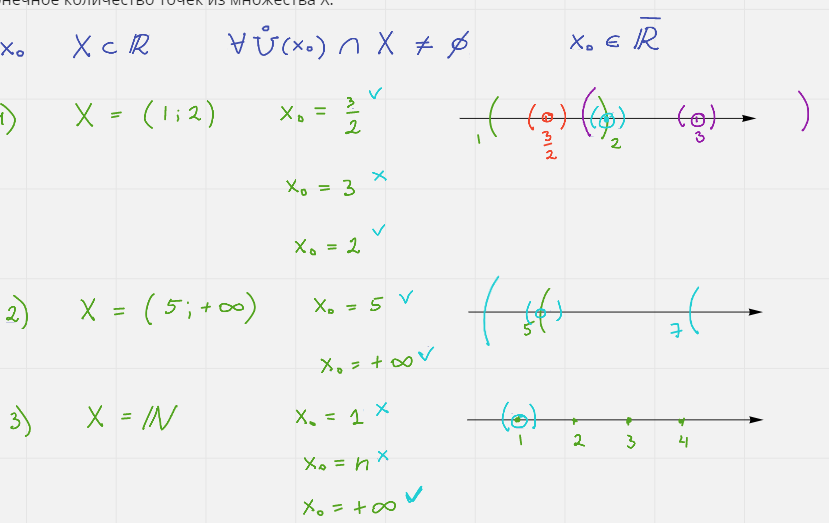 нечное количество точек из множества X.
x₀ X ⊂ ℝ ∀ Ů(x₀) ∩ X ≠ ∅ x₀ ∈ ℝ̅
1) X = (1; 2) x₀ = 3/2 ✓
x₀ = 3 ×
x₀ = 2 ✓
1 3/2 2 3
2) X = (5; +∞) x₀ = 5 ✓
x₀ = +∞ ✓
5 7
3) X = ℕ x₀ = 1 ×
x₀ = n ×
x₀ = +∞ ✓
1 2 3 4